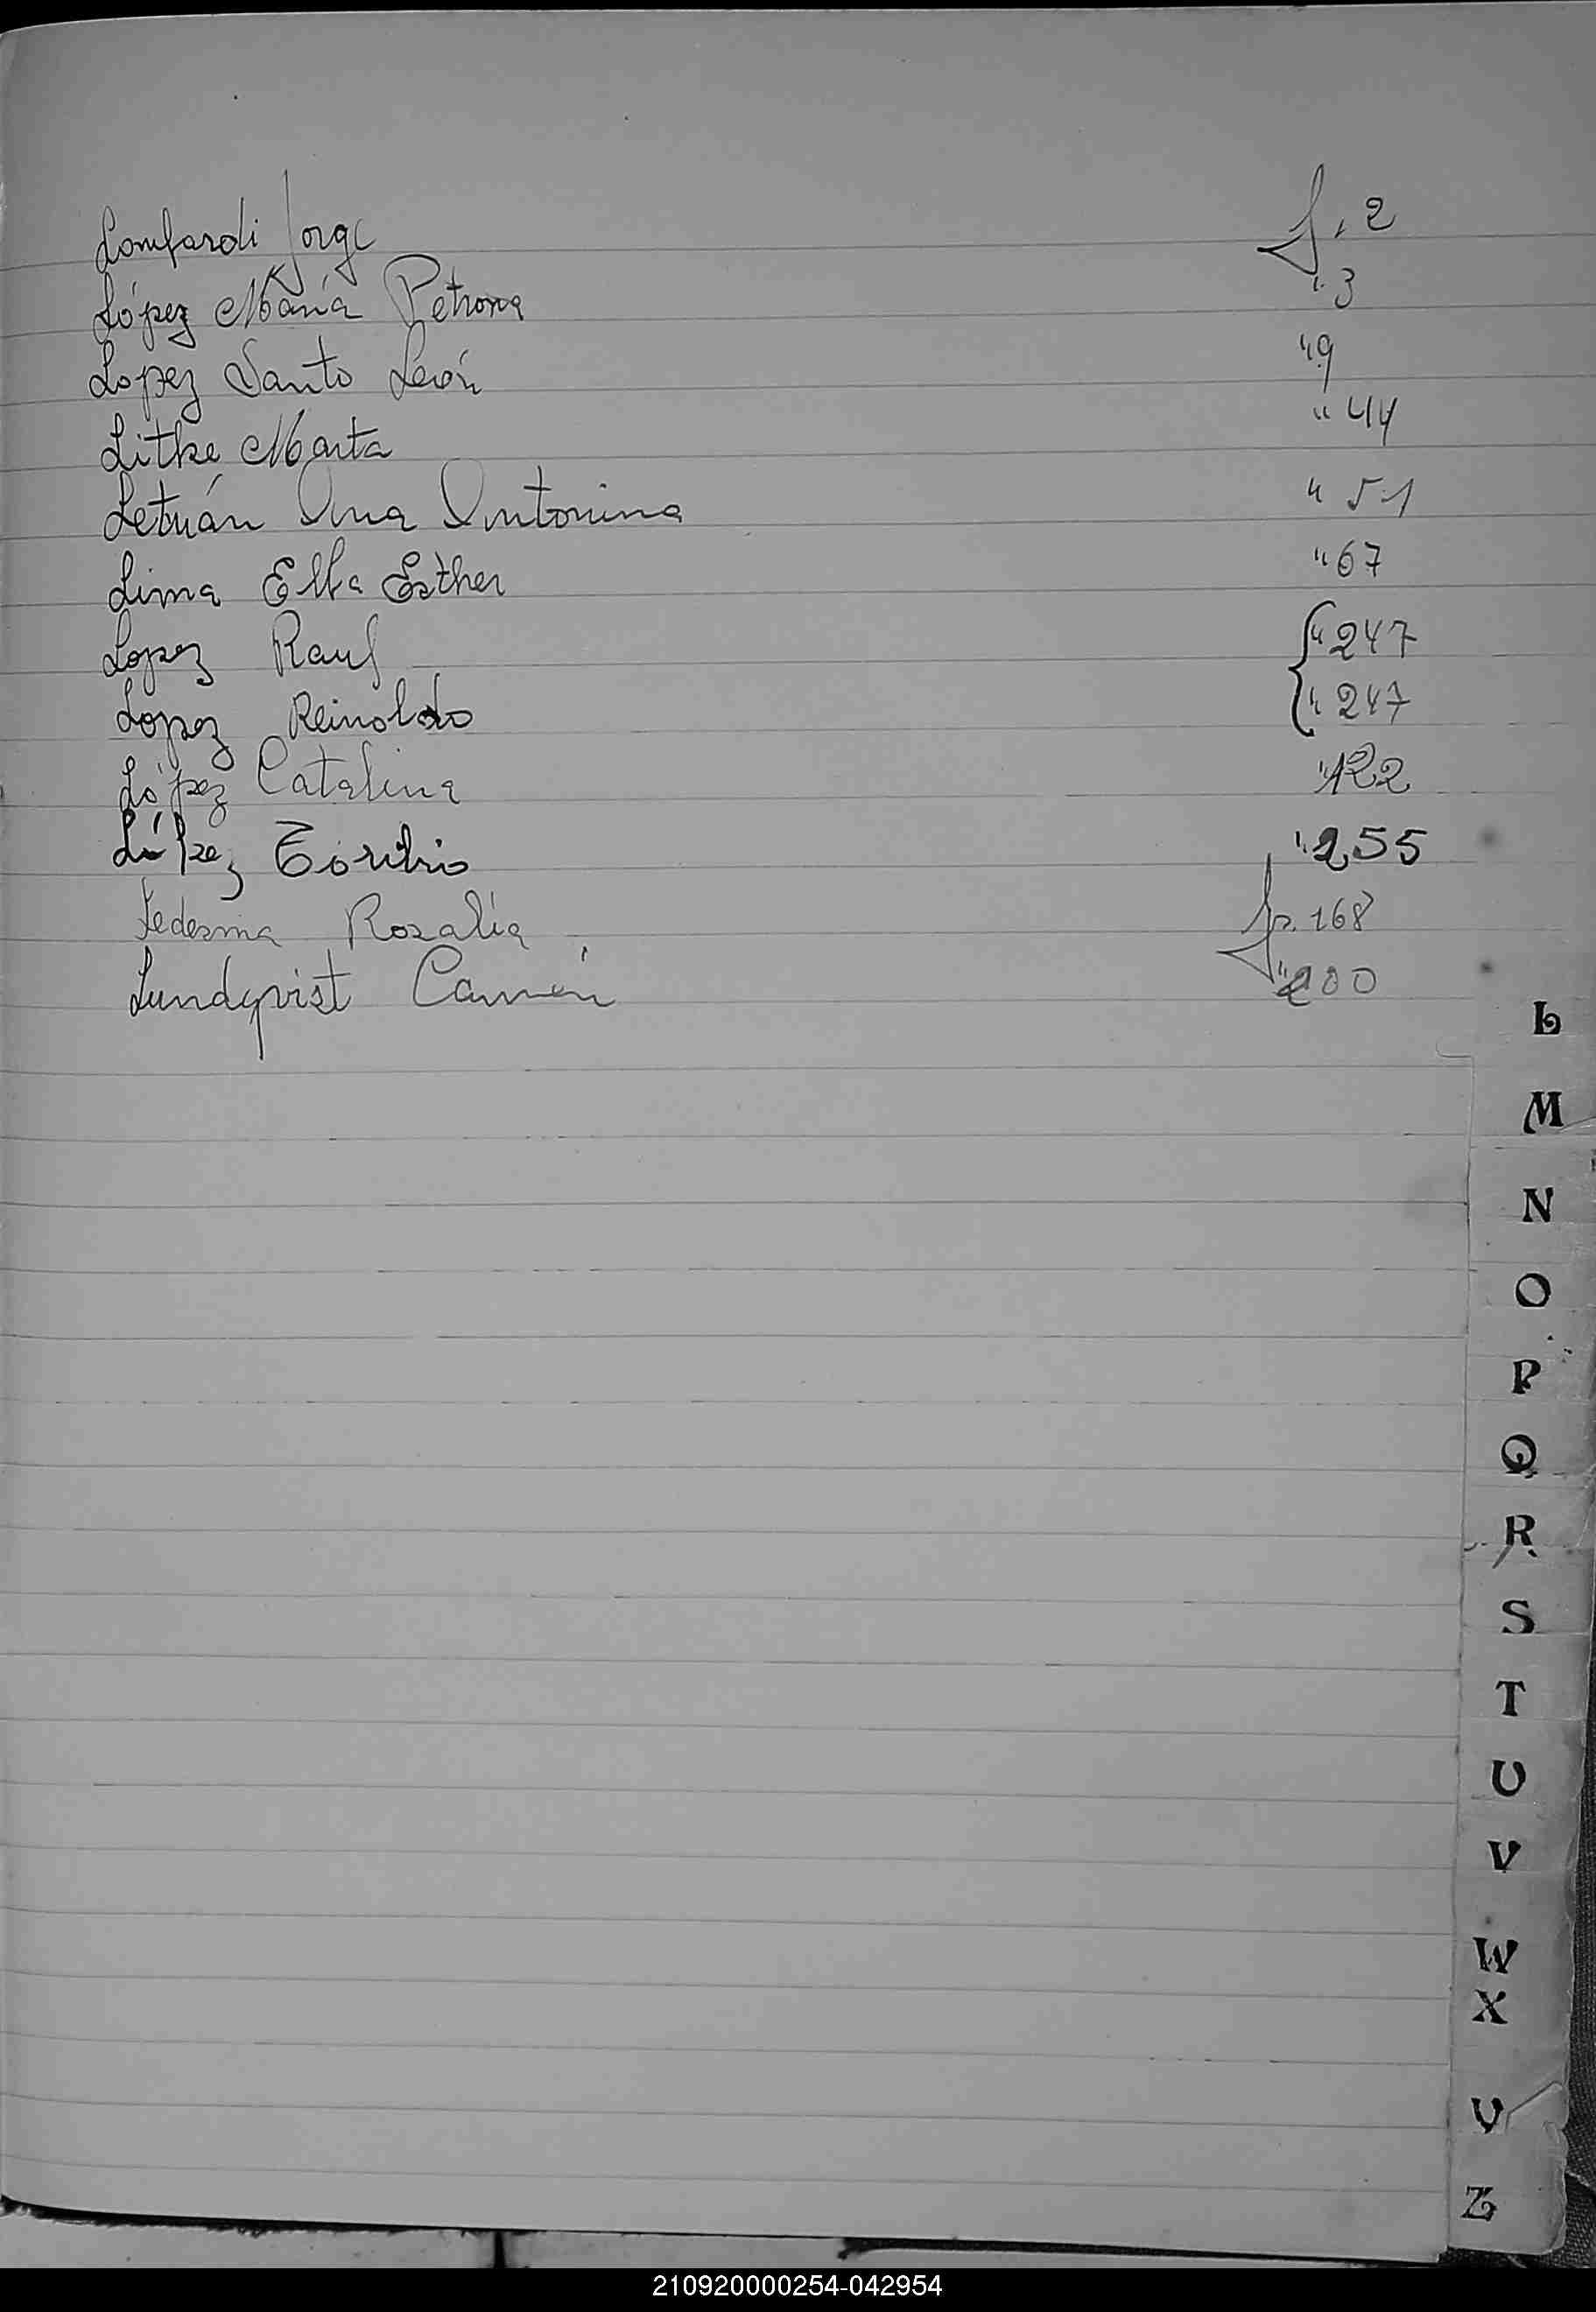 Lombardi Jorge f. 2
López María Petrona " 3
Lopez Santo León " 9
Litke Marta " 44
Letuán Ana Antonina " 51
Lima Elba Esther " 67
Lopez Raul " 247
Lopez Reinoldo " 247
López Catalina " 122
López Toribio " 255
Ledesma Rosalía fs. 168
Lundqvist Carmen " 200
L
M
N
O
P
Q
R
S
T
U
V
W
X
Y
Z
210920000254-042954